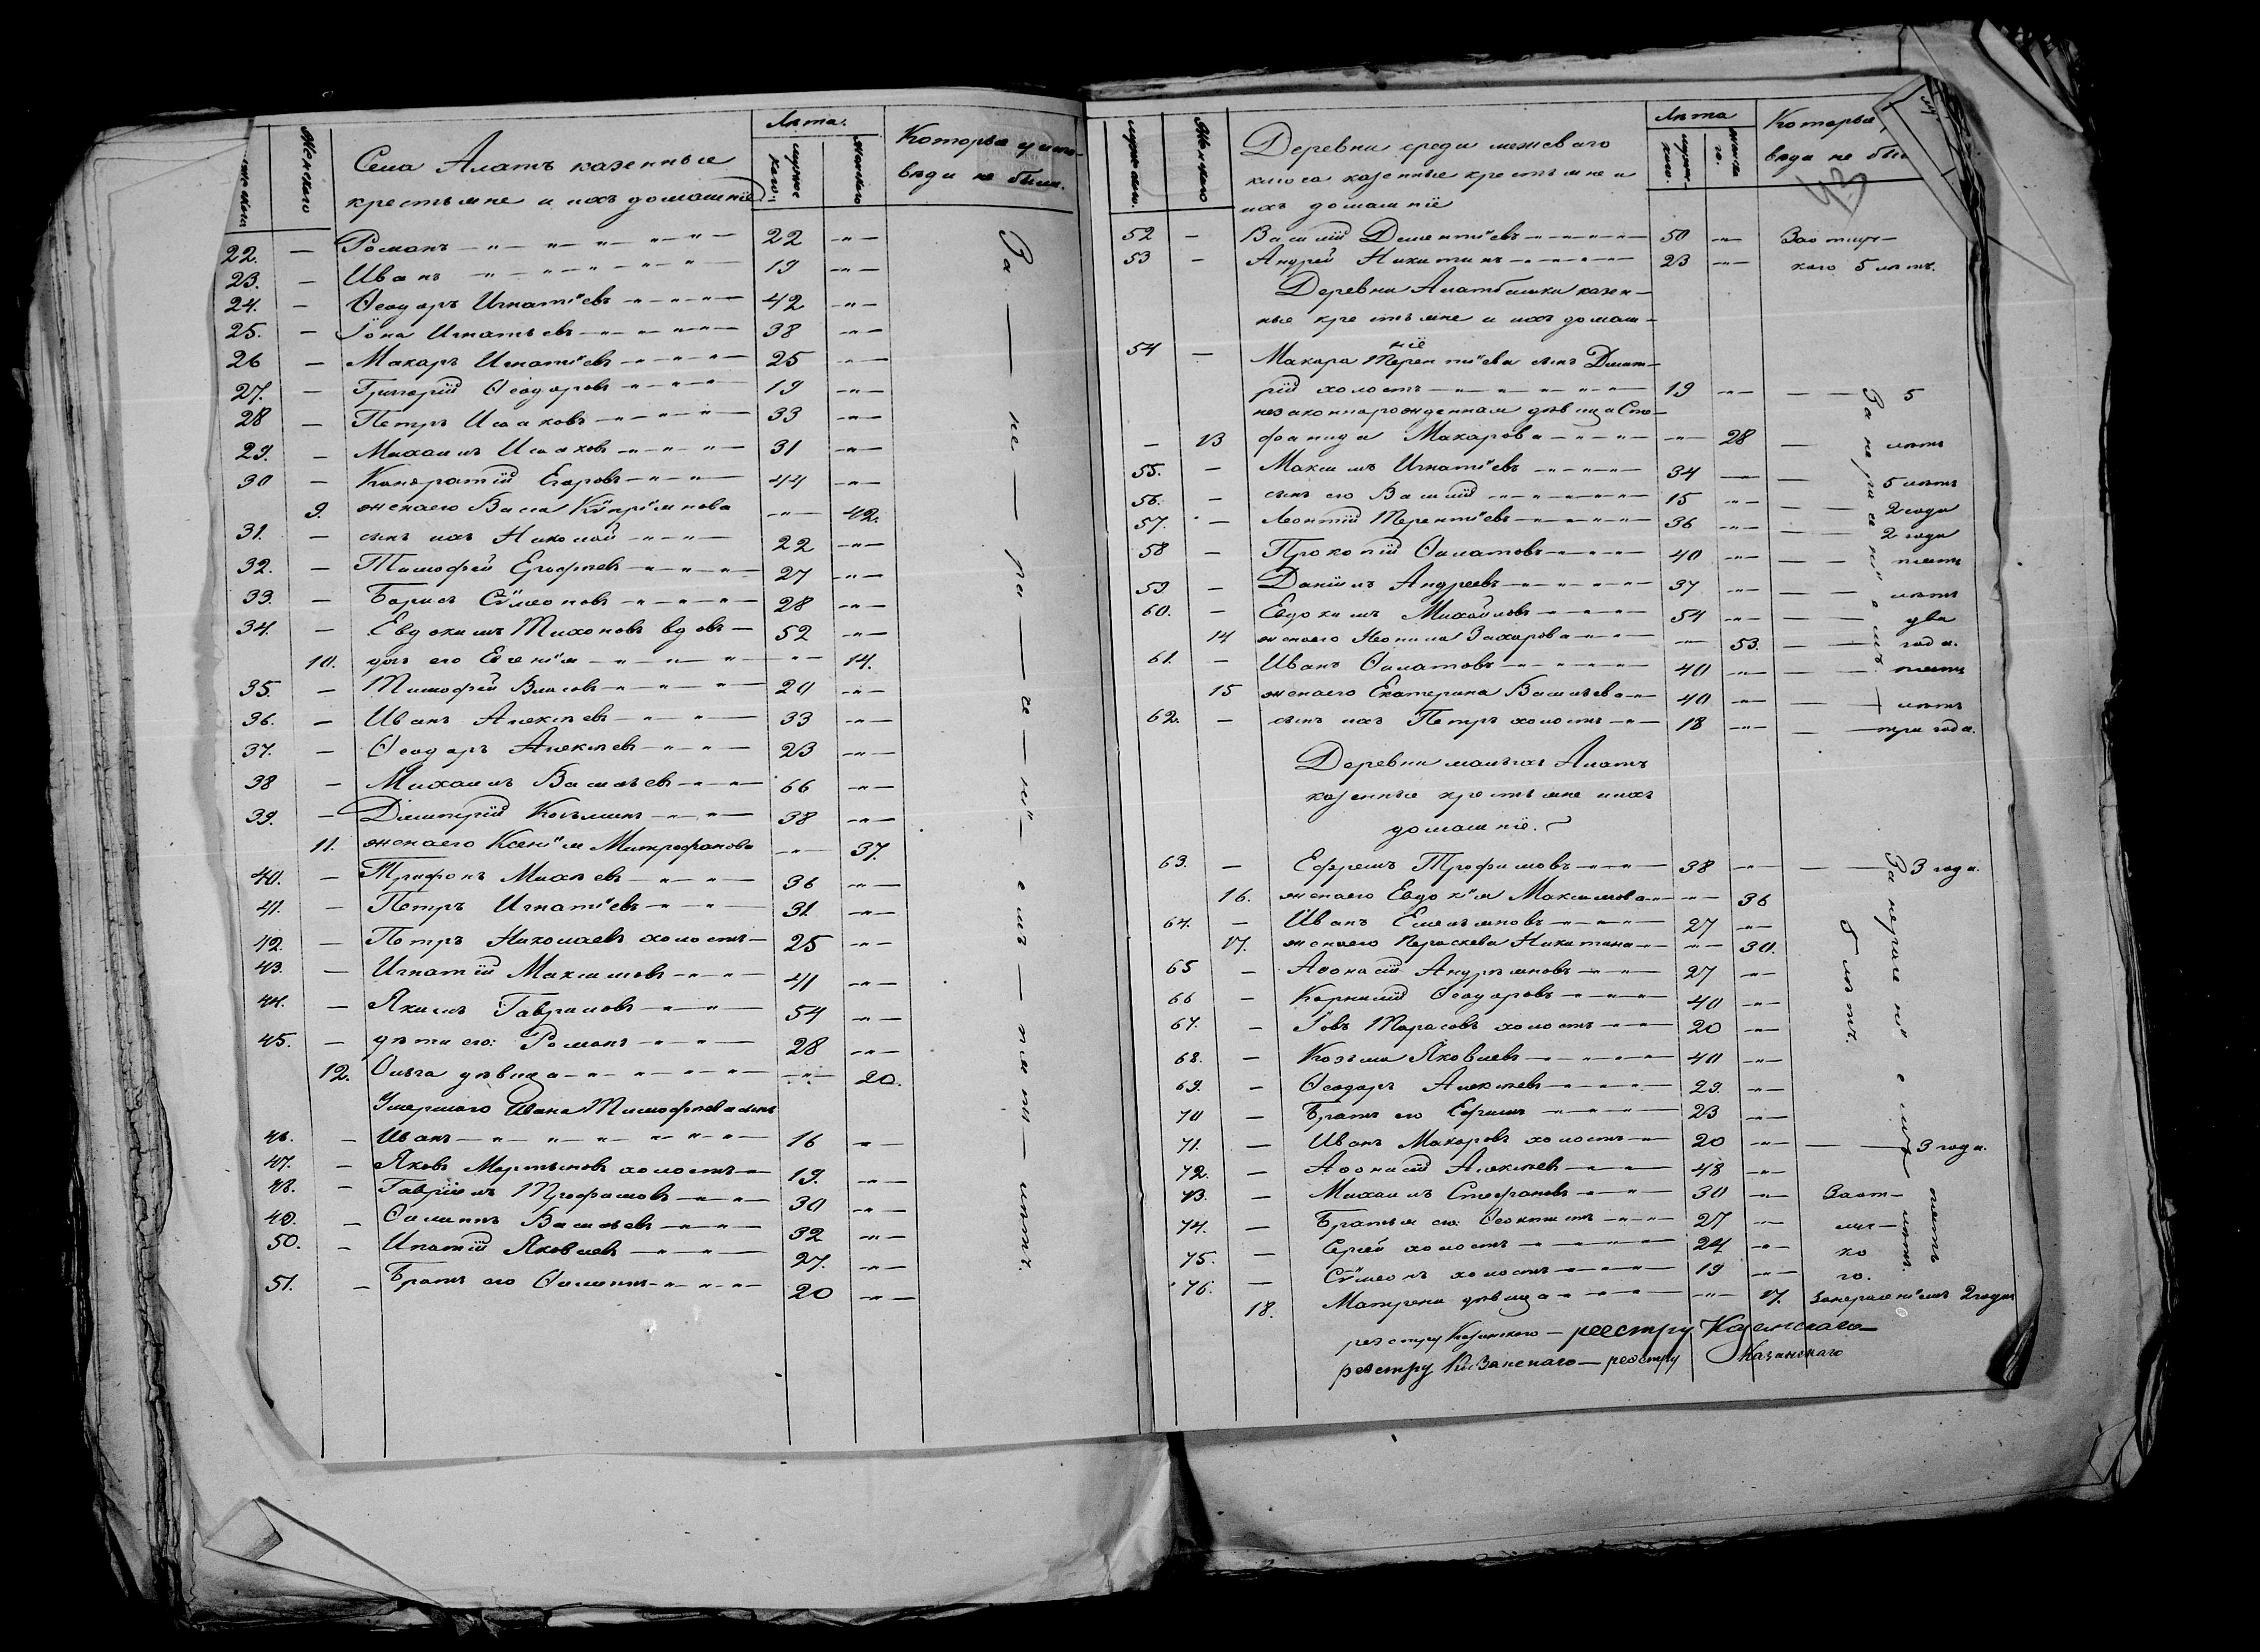 Женскаго
Села Алатъ казенные
крестьяне и ихъ домашніе
Лѣта.
мужескаго.
Женскаго
Которые у испо-
вѣди не были.
22. — Романъ 22
23. — Иванъ 19
24. — Ѳеодоръ Игнатіевъ 42
25. — Іона Игнатьевъ 38
26 — Макаръ Игнатіевъ 25
27. — Григорій Ѳеодоровъ 19
28 — Петръ Исаковъ 33
29. — Михаилъ Исаковъ 31
30 — Кондратій Егоровъ 44
9. жена его Васса Кѵпріянова 42.
31. — сынъ ихъ Николай 22
32. — Тимофей Ерофѣевъ 27
33. — Борисъ Сѵмеоновъ 28
34. — Евдокимъ Тихоновъ вдовъ 52
10. дочь его Евгенія 14.
35. — Тимофей Власовъ 20
36. — Иванъ Алексѣевъ 33
37. — Ѳеодоръ Алексѣевъ 23
38 — Михаилъ Васильевъ 66
39. — Димитрій Козьминъ 38
11. жена его Ксенія Митрофанова 37.
40. — Трифонъ Михѣевъ 36
41. — Петръ Игнатіевъ 31.
42. — Петръ Николаевъ холостъ 25
43. — Игнатій Максимовъ 41
44. — Якимъ Гавриловъ 54
45. — дѣти его: Романъ 28
12. Ольга дѣвица 20.
Умершаго Ивана Тимофѣева сынъ
46. — Иванъ 16
47. — Яковъ Мартыновъ холостъ 19.
48. — Гавріилъ Трофимовъ 30
49. — Филиппъ Васильевъ 32
50. — Ипатій Яковлевъ 27.
51. — Братъ его Филиппъ 20
За — не — ра — че — ні — емъ — пять — лѣтъ.
Женскаго
Деревни среди межеваго
казенные крестьяне и
ихъ домашніе
Лѣта
Которые
вѣди не бы
43
52 — Василій Дементіевъ 50 За отлуч-
53 — Андрей Никитинъ 23 кого 5 лѣтъ.
Деревни Алатбашки казен-
ные крестьяне и ихъ домаш-
ніе
54 — Макара Терентіева сынъ Димит-
рій холостъ 19 — 5
незаконнорожденная дѣвица Сте-
— 13 фанида Макарова 28 — лѣтъ
55. — Максимъ Игнатіевъ 34 — 5 лѣтъ
56. — сынъ его Василій 15 — 2 года
57. — Леонтій Терентіевъ 36 — 2 года
58 — Прокопій Филатовъ 40 — пять
59. — Даніилъ Андреевъ 37 — лѣтъ
60. — Евдокимъ Михайловъ 54 — два
14 жена его Неонила Захарова 53. — года.
61. — Иванъ Филатовъ 40 — пять
15 жена его Екатерина Васильева 40 — лѣтъ
62. — сынъ ихъ Петръ холостъ 18 — три года.
За нераченіемъ
Деревни малыхъ Алатъ
казенные крестьяне и ихъ
домашніе.
63. — Ефремъ Трофимовъ 38 — 3 года.
16. жена его Евдокія Максимова 36
64. — Иванъ Емельяновъ 27
17. жена его Параскева Никитина 30.
65 — Аѳонасій Андреяновъ 27
66 — Корнилій Ѳеодоровъ 40
67. — Іовъ Тарасовъ холостъ 20
68. — Козьма Яковлевъ 40
69. — Ѳеодоръ Алексѣевъ 29.
70 — Братъ его Ефимъ 23
71. — Иванъ Макаровъ холостъ 20 — 3 года.
72. — Аѳонасій Алексѣевъ 48
73. — Михаилъ Стефановъ 30 За от-
74. — Братья его: Ѳеоктистъ 27 луч-
75. — Сергѣй холостъ 24 ко
76. — Сѵмеонъ холостъ 19 го.
18. Матрена дѣвица 17. За нераченіемъ 2 года
За нераченіемъ пять лѣтъ
5 лѣтъ.
реэстру Казанскаго — реестру Казанскаго
реэстру Казанскаго — реэстру Казанскаго